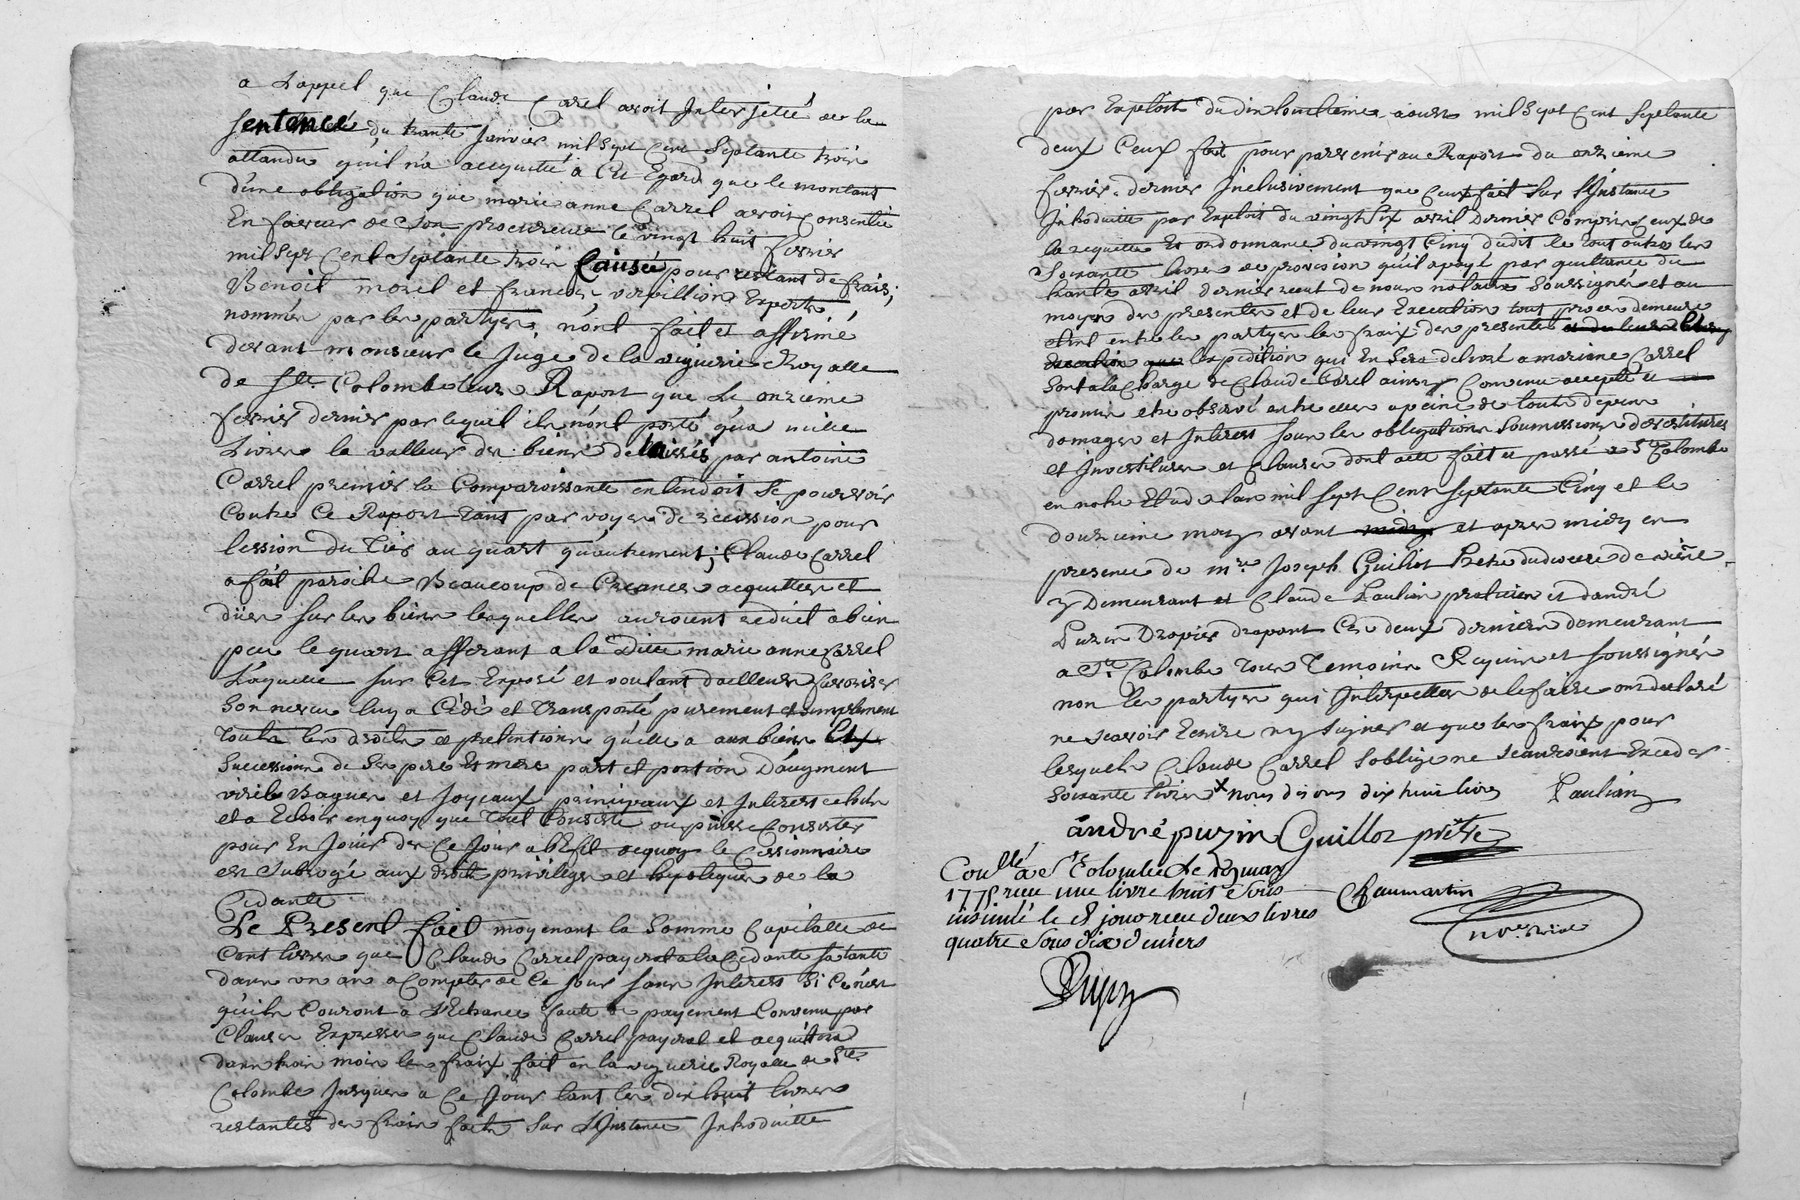 a L'appel que Claude Carrel avoit Interjetté de la
sentence du trante janvier mil sept cent septante trois
attandu qu'il n'a acquitté a Cet Egard que le montant
d'une obligation que marie anne Carrel avoit Consentie
En faveur de Son procureur le vingt huit fevrier
mil sept Cent septante trois Causée pour restant de frais;
Benoit morel et francois vervillion Experts
nommés par les partyes, n'ont fait et affirmé
devant monsieur le Juge de la viguerie Royalle
de Ste. Colombe leur Raport que Le onzieme
fevrier dernier par lequel ils n'ont porté qu'a mille
Livres la valleur des biens delaissés par antoine
Carrel premier la Comparoissante entendoit se pourvoir
Contre Ce Raport tant par voyes de recission pour
lession du Tiers au quart qu'autrement; Claude Carrel
a fait paroitre Beaucoup de Creances acquittees et
dües sur les biens lesquelles auroient reduit a bien
peu le quart afferant a la Ditte marie anne Carrel
Laquelle sur Cet Exposé et voulant dailleurs favoriser
Son neveu luy a Cédé et Transporté purement et simplement
touts les droits et pretentions qu'elle a aux biens Et
Successions de Ses pere Et mere part et portion D'augment
virile Bagues et Joyeaux principaux et Interets echus
et a Echoir en quoy que Tout Consiste ou puisse Consister
pour En Jouir des Ce Jour a l'Efet dequoy le Cessionnaire
est Subrogé aux droits privileges et hypoteques de la
Cedante
Le Present fait moyenant la Somme Capitalle de
Cent livres que Claude Carrel payerat a la Cedante sa tante
dans un an a Compter de Ce Jour sans Interets Si Ce n'est
qu'ils Couront a L'Echance faute de payement Convenu par
Clause Expresse que Claude Carrel payerat et acquittera
dans trois mois les fraix fait en la viguerie Royalle de Ste.
Colombe Jusques a Ce Jour tant les dix huit livres
restantes des frais faits Sur L'Instance Introduitte
par Exploit du dix huitieme aoust mil Sept Cent Septante
deux Ceux fait pour parvenir au Raport du onzieme
fevrier dernier Inclusivement que Ceux fait Sur l'Instance
Introduitte par Exploit du vingt Six avril Dernier Compris Ceux de
la requette Et ordonnance du vingt Cinq dudit le tout outre les
Soixante livres de provision qu'il a payé par quittance du
trante avril dernier recut de nous notaire Soussigné et au
moyen des presentes et de leur Execution tout proces demeure
etint entre les partyes les fraix des presentes et de leur Et
Execution que lexpedition qui En Sera delivré a mariane Carrel
Sont a la Charge de Claude Carrel ainsy Convenu accepté et
promis etre observé entre elles a peine de touts depens
domages et Interets sous les obligations Soumissions devestitures
et Investitures et Clauses dont acte fait et passé a Ste Colombe
en notre Etude l'an mil sept Cent septante Cinq et le
douzieme may avant midy et apres midy en
presence de mre. Joseph Guilliot Pretre du diocese de vienne
y Demeurant et Claude Paulian praticien et d'andré
Puzin Drapier drapant Ces deux derniers demeurant
a Ste. Colombe tous Temoins Requis et soussignés
non les partyes qui Interpellées de le faire ont declaré
ne scavoir Ecrire ny Signer et que les fraix pour
lesquels Claude Carrel s'oblige ne scauroient Exceder
Soixante livres x nous disons dix huit livres Paulian
andré puzin Guillot prêtre
Conllé a Ste Colombe Le 19 may
1775 reçu une livre huit Sous
insinué le d. jour reçu deux livres
quatre Sous dix deniers
Chaumartin
nre. Roial